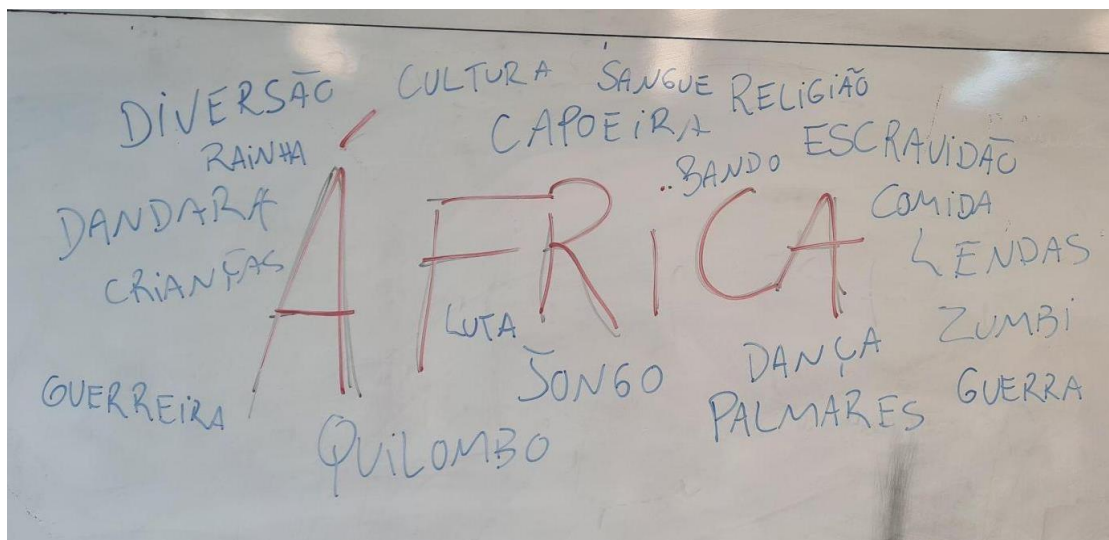 DIVERSÃO CULTURA SANGUE RELIGIÃO
RAINHA CAPOEIRA ESCRAVIDÃO
DANDARA BANDO COMIDA
CRIANÇAS ÁFRICA LENDAS
LUTA JONGO DANÇA ZUMBI
GUERREIRA PALMARES GUERRA
QUILOMBO